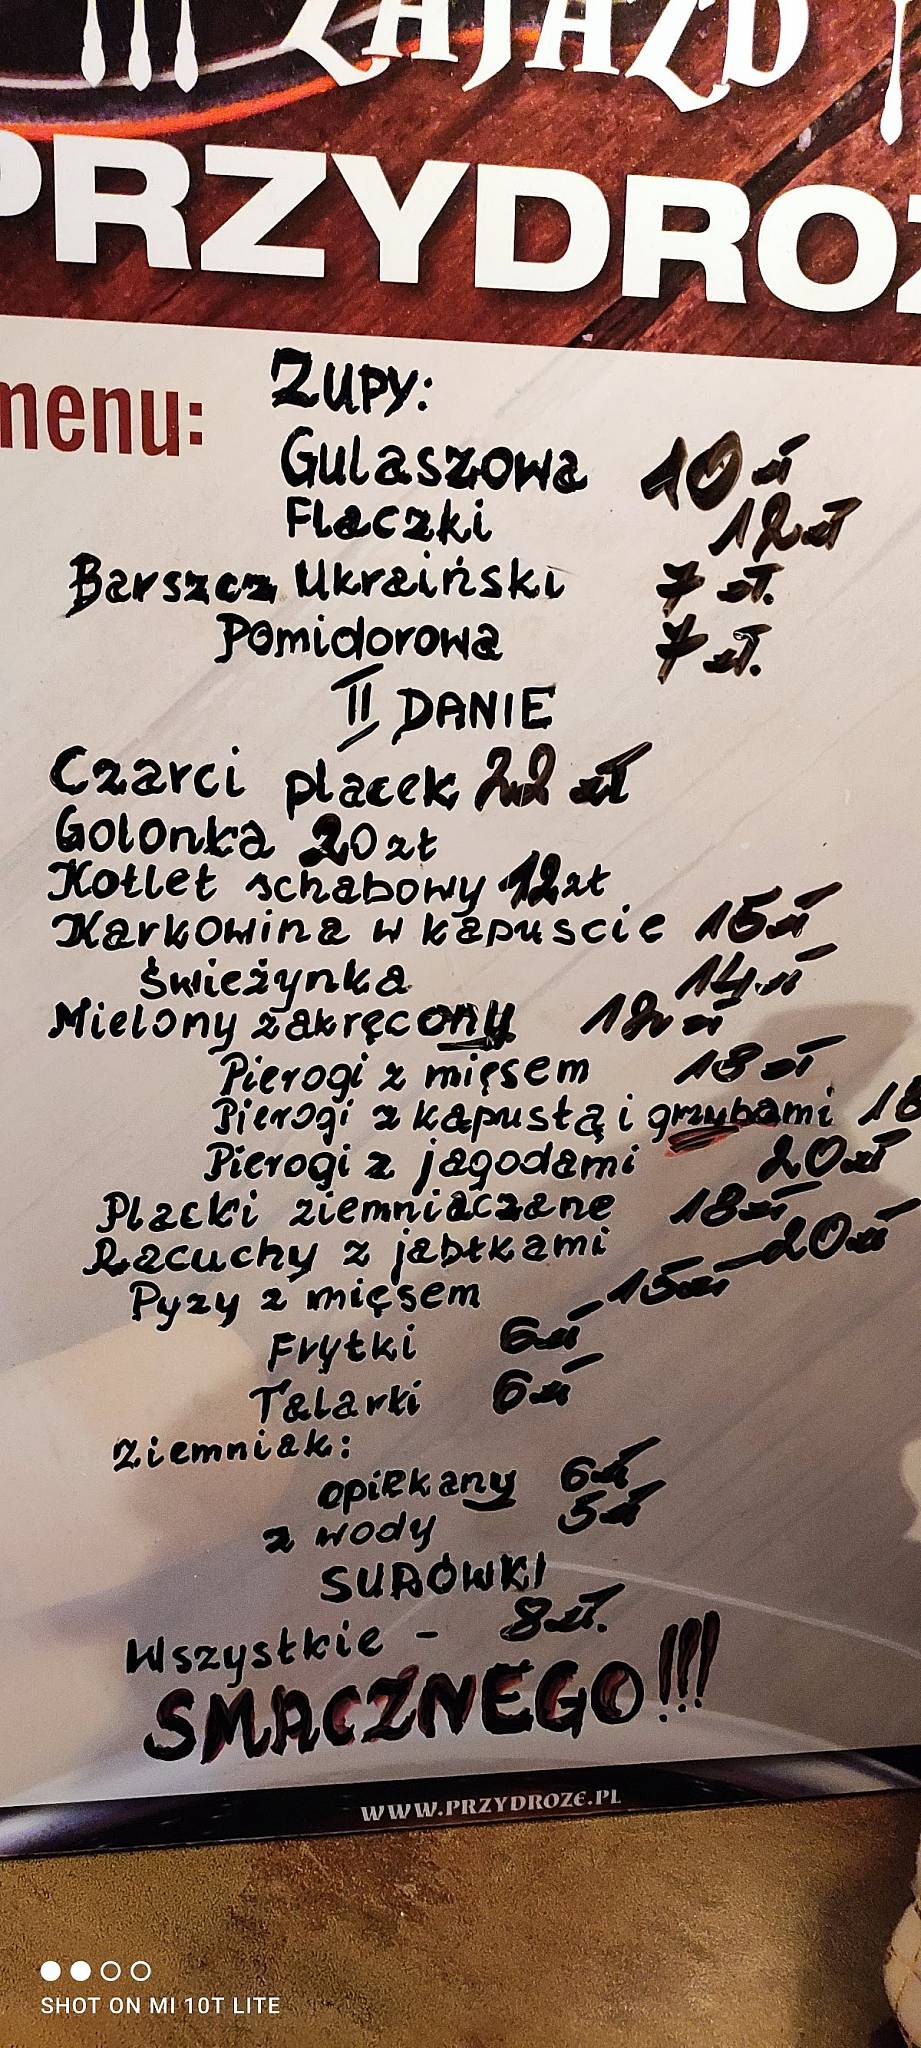 ZAJAZD
PRZYDROŻ
menu:
Zupy:
Gulaszowa 10 zł
Flaczki 12 zł
Barszcz Ukraiński 7 zł.
Pomidorowa 7 zł.
II DANIE
Czarci placek 22 zł
Golonka 20 zł
Kotlet schabowy 12 zł
Karkowina w kapuscie 15 zł
Świeżynka 14 zł
Mielony zakręcony 12 zł
Pierogi z mięsem 18 zł
Pierogi z kapustą i grzybami 18
Pierogi z jagodami 20 zł
Placki ziemniaczane 18 zł
Racuchy z jabłkami 20 zł
Pyzy z mięsem 15 zł
Frytki 6 zł
Talarki 6 zł
Ziemniak:
opiekany 6 zł
z wody 5 zł
SURÓWKI
Wszystkie - 8 zł.
SMACZNEGO!!!
WWW.PRZYDROZE.PL
SHOT ON MI 10T LITE